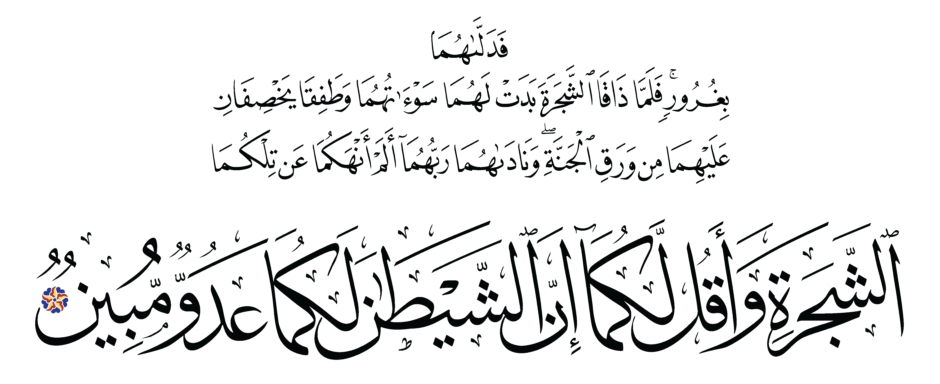 فَدَلَّىٰهُمَا
بِغُرُورٍۚ فَلَمَّا ذَاقَا ٱلشَّجَرَةَ بَدَتْ لَهُمَا سَوْءَٰتُهُمَا وَطَفِقَا يَخْصِفَانِ
عَلَيْهِمَا مِن وَرَقِ ٱلْجَنَّةِۖ وَنَادَىٰهُمَا رَبُّهُمَآ أَلَمْ أَنْهَكُمَا عَن تِلْكُمَا
ٱلشَّجَرَةِ وَأَقُل لَّكُمَآ إِنَّ ٱلشَّيْطَٰنَ لَكُمَا عَدُوٌّ مُّبِينٌ